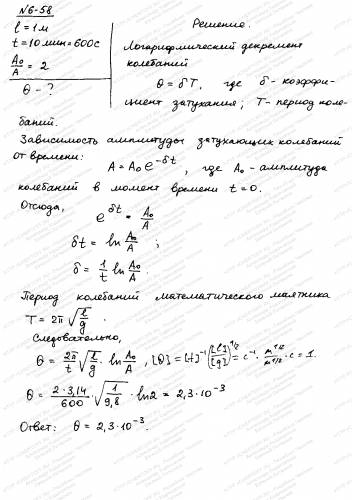 №6-58
l = 1 м
t = 10 мин = 600 с
A₀/A = 2
θ - ?
Решение.
Логарифмический декремент
колебаний
θ = δT, где δ - коэффи-
циент затухания; T - период коле-
баний.
Зависимость амплитуды затухающих колебаний
от времени: A = A₀e^(-δt), где A₀ - амплитуда
колебаний в момент времени t = 0.
Отсюда,
e^(δt) = A₀/A
δt = ln A₀/A ;
δ = 1/t ln A₀/A.
Период колебаний математического маятника
T = 2π √(l/g).
Следовательно,
θ = 2π/t √(l/g) · ln A₀/A, [θ] = [t]⁻¹ ([l]/[g])^(1/2) = с⁻¹ · м^(1/2)/м^(1/2) · с = 1.
θ = 2·3,14/600 · √(1/9,8) · ln2 = 2,3·10⁻³
Ответ: θ = 2,3·10⁻³.